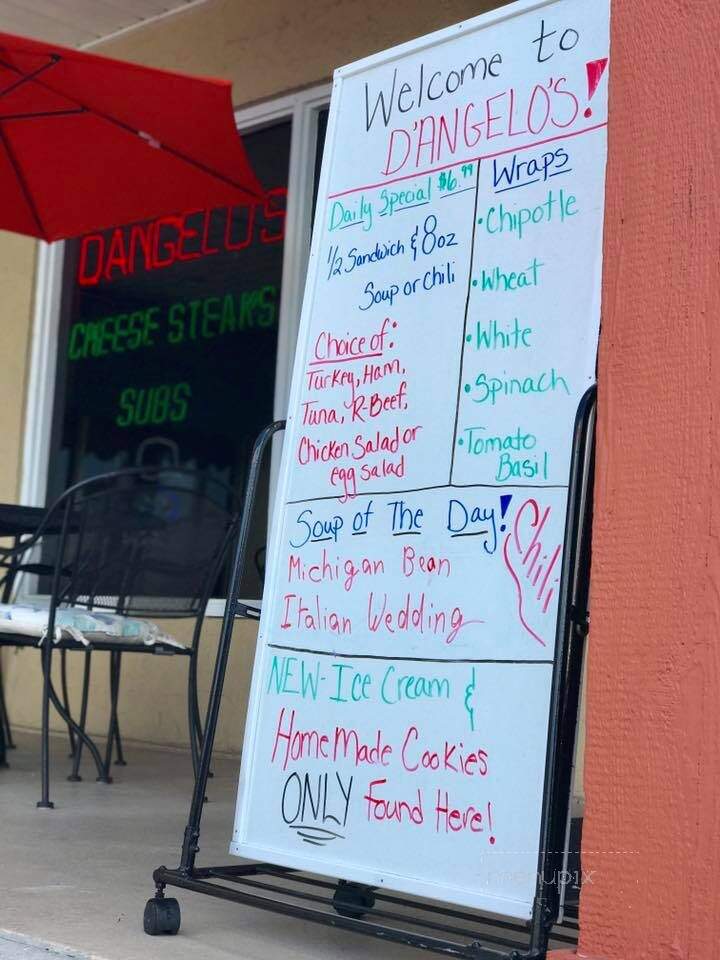 Welcome to
D'ANGELO'S!
Daily Special $6.99
1/2 Sandwich & 8oz
Soup or Chili
Choice of:
Turkey, Ham,
Tuna, R-Beef,
Chicken Salad or
egg salad
Wraps
•Chipotle
•Wheat
•White
•Spinach
•Tomato
Basil
Soup of The Day!
Michigan Bean
Italian Wedding
Chili
NEW-Ice Cream &
HomeMade Cookies
ONLY Found Here!
DANGELO'S
CHEESE STEAKS
SUBS
menupix